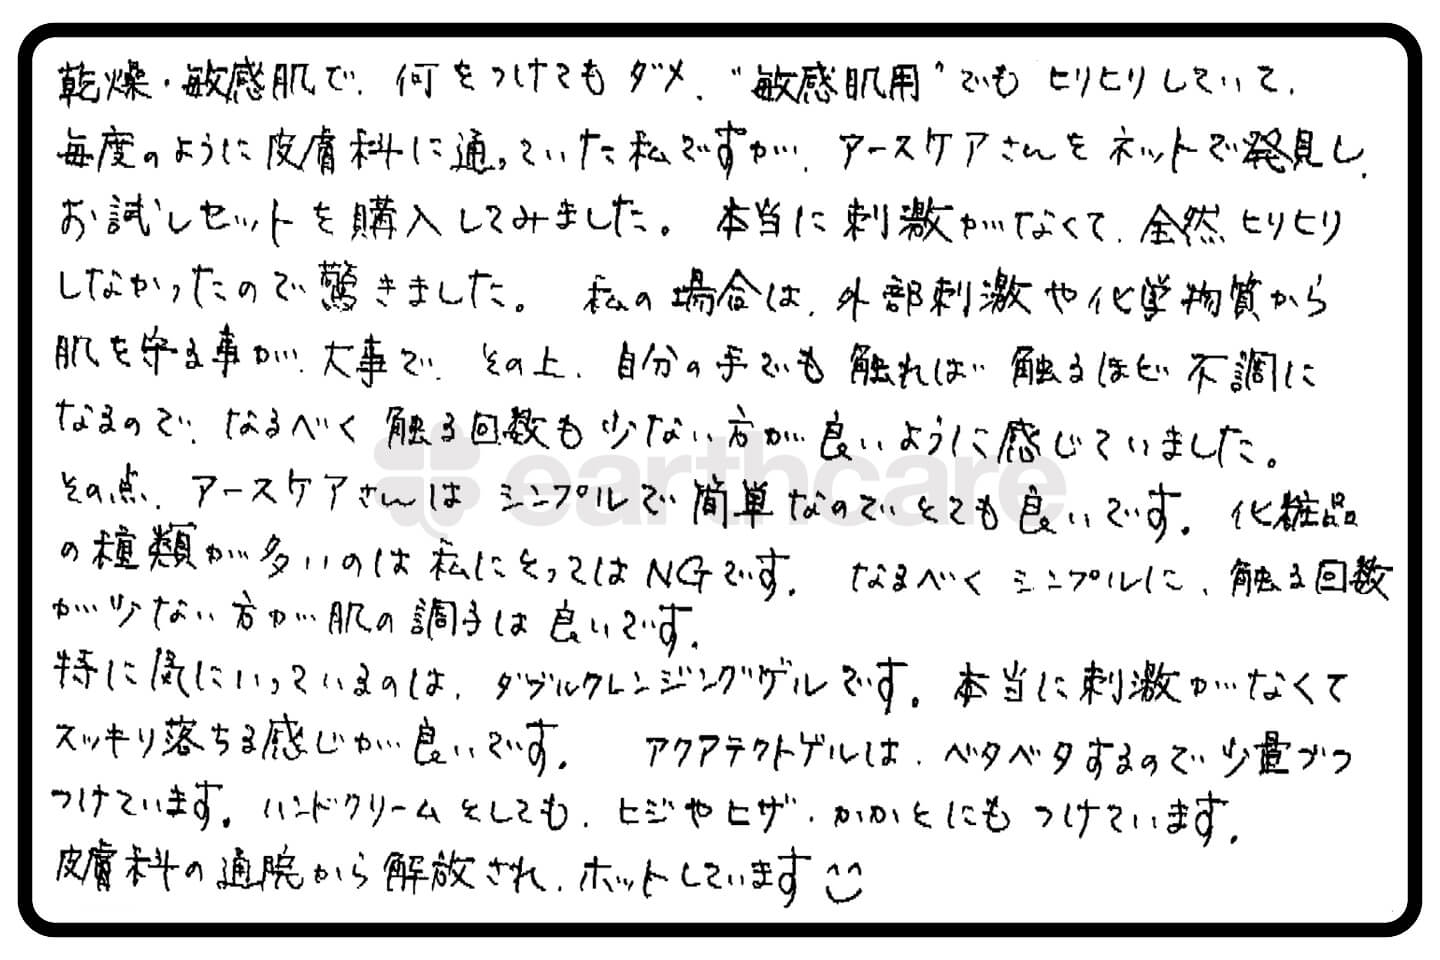 乾燥・敏感肌で、何をつけてもダメ、“敏感肌用”でもヒリヒリしていて、
毎度のように皮膚科に通っていた私ですが、アースケアさんをネットで発見し、
お試しセットを購入してみました。本当に刺激がなくて、全然ヒリヒリ
しなかったので驚きました。私の場合は、外部刺激や化学物質から
肌を守る事が、大事で、その上、自分の手でも触れれば触るほど不調に
なるので、なるべく触る回数も少ない方が良いように感じていました。
earthcare
その点、アースケアさんはシンプルで簡単なのでとても良いです。化粧品
の種類が多いのは私にとってはNGです。なるべくシンプルに、触る回数
が少ない方が肌の調子は良いです。
特に気にいっているのは、ダブルクレンジングゲルです。本当に刺激がなくて
スッキリ落ちる感じが良いです。アクアテクトゲルは、ベタベタするので少量づつ
つけています。ハンドクリームとしても、ヒジやヒザ・かかとにもつけています。
皮膚科の通院から解放され、ホットしています